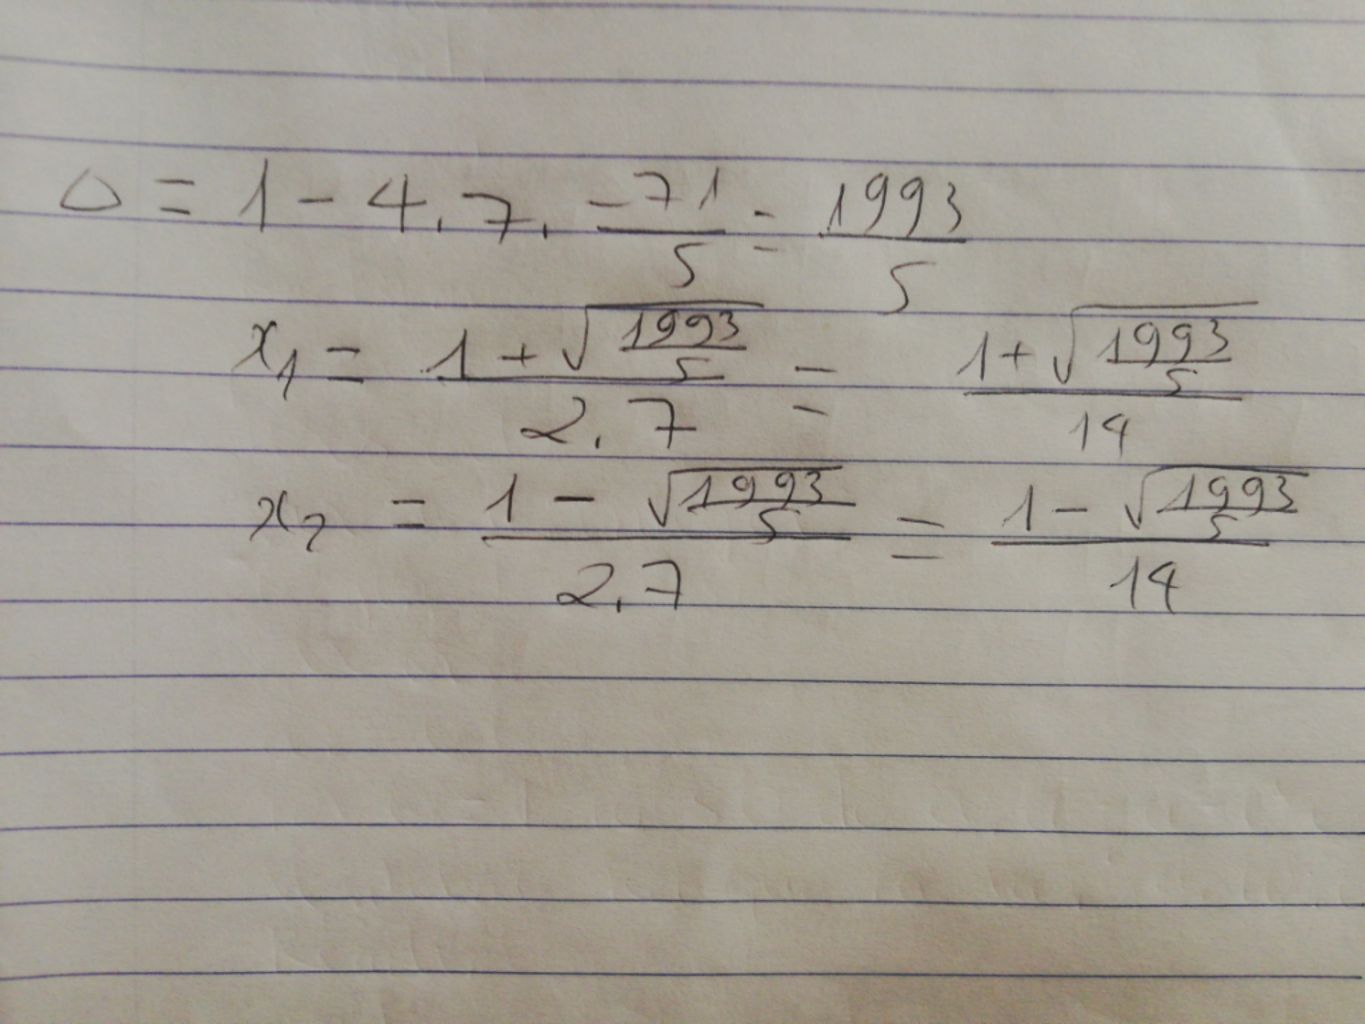 Δ = 1 - 4 . 7 . -71/5 = 1993/5
x₁ = (1 + √(1993/5))/(2 . 7) = (1 + √(1993/5))/14
x₂ = (1 - √(1993/5))/(2 . 7) = (1 - √(1993/5))/14